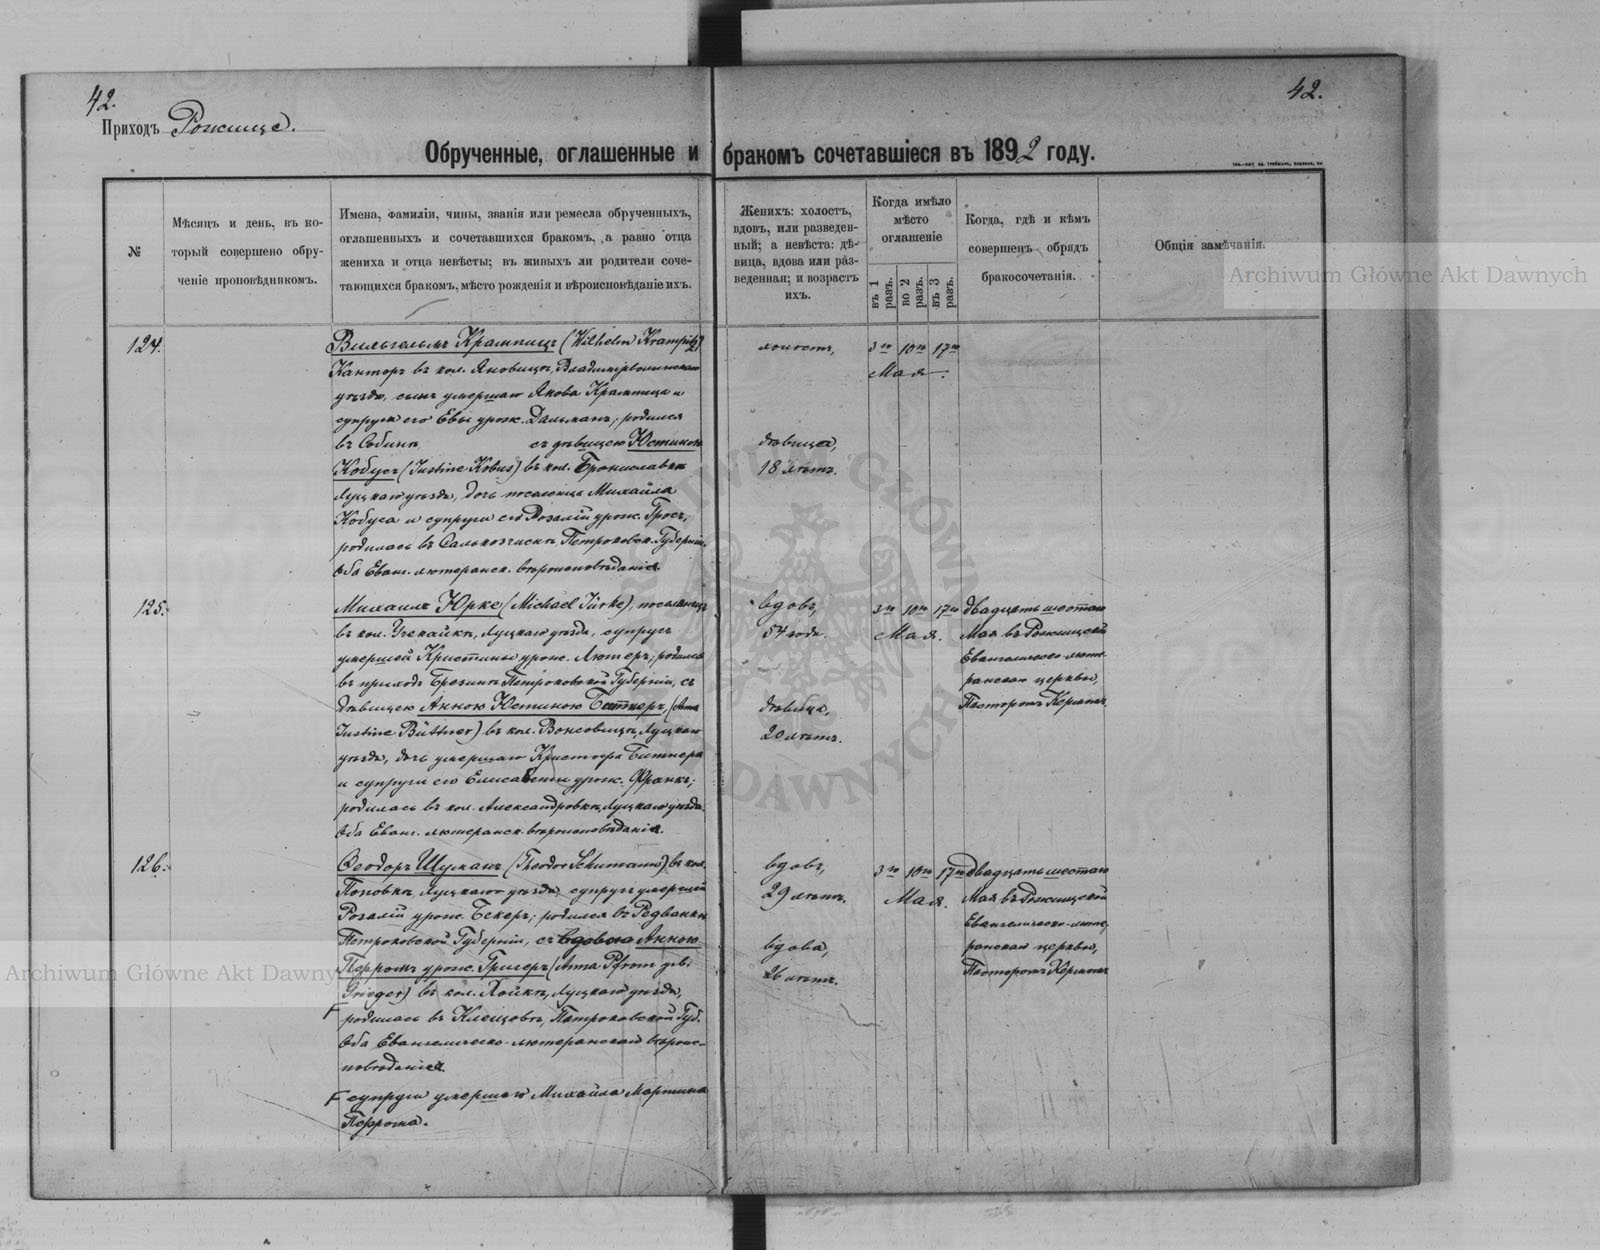 42.
42.
Приходъ Рожище.
Обрученные, оглашенные и бракомъ сочетавшіеся въ 1892 году.
№
Мѣсяцъ и день, въ ко-
торый совершено обру-
ченіе проповѣдникомъ.
Имена, фамиліи, чины, званія или ремесла обрученныхъ,
оглашенныхъ и сочетавшихся бракомъ, а равно отца
жениха и отца невѣсты; въ живыхъ ли родители соче-
тающихся бракомъ, мѣсто рожденія и вѣроисповѣданіе ихъ.
Женихъ: холостъ,
вдовъ, или разведен-
ный; а невѣста: дѣ-
вица, вдова или раз-
веденная; и возрастъ
ихъ.
Когда имѣло
мѣсто
оглашеніе
въ 1 разъ.
во 2 разъ.
въ 3 разъ.
Когда, гдѣ и кѣмъ
совершенъ обрядъ
бракосочетанія.
Общія замѣчанія.
124.
Вильгельмъ Крампицъ (Wilhelm Krampitz)
Канторъ въ кол. Яновицъ, Владимірволынскаго
уѣзда, сынъ умершаго Якова Крампица и
супруги его Евы урож. Дальманъ; родился
въ с дѣвицею Юстиною
Кобусъ (Justine Kobus) въ кол. Брониславкѣ
Луцкаго уѣзда, дочь поселенца Михайла
Кобуса и супруги его Розаліи урож. Гросъ,
родилась въ Петроковск. Губерніи.
Оба Еванг. лютеранск. вѣроисповѣданія.
холостъ,
дѣвица,
18 лѣтъ.
3го 10го 17го
Мая.
125.
Михаилъ Юрке (Michael Jürke), поселенецъ
въ кол. Луцкаго уѣзда, супругъ
умершей Кристины урож. Лютеръ; родился
въ приходѣ Брезинъ Петроковской Губерніи, съ
дѣвицею Анною Юстиною Битнеръ, (Anna
Justine Büttner) въ кол. Луцкаго
уѣзда, дочь умершаго Кристофа Битнера
и супруги его Елисабеты урож. Франкъ;
родилась въ кол. Александровкѣ, Луцкаго уѣзда.
Оба Еванг. лютеранск. вѣроисповѣданія.
вдовъ,
54 года.
дѣвица,
20 лѣтъ.
3го 10го 17го
Мая.
двадцать шестаго
Мая въ Рожищской
Евангелическо-люте-
ранской церкви,
Пасторомъ Керномъ
126.
Ѳеодоръ Шуманъ (Theodor Schumann) въ кол.
Поповкѣ, Луцкаго уѣзда, супругъ умершей
Розаліи урож. Бекеръ; родился въ
Петроковской Губерніи, съ вдовою Анною
Пфромъ урож. Григеръ (Anna Pfrom geb.
Grieger) въ кол. Луцкаго уѣзда,
родилась въ Петроковской Губ.
Оба Евангелическо-лютеранскаго вѣроис-
повѣданія
супруги умершаго Михаила Мартина
Пфрома.
вдовъ,
29 лѣтъ.
вдова,
26 лѣтъ.
3го 10го 17го
Мая.
двадцать шестаго
Мая въ Рожищской
Евангелическо-люте-
ранской церкви,
Пасторомъ Керномъ
Archiwum Główne Akt Dawnych
Archiwum Główne Akt Dawnych